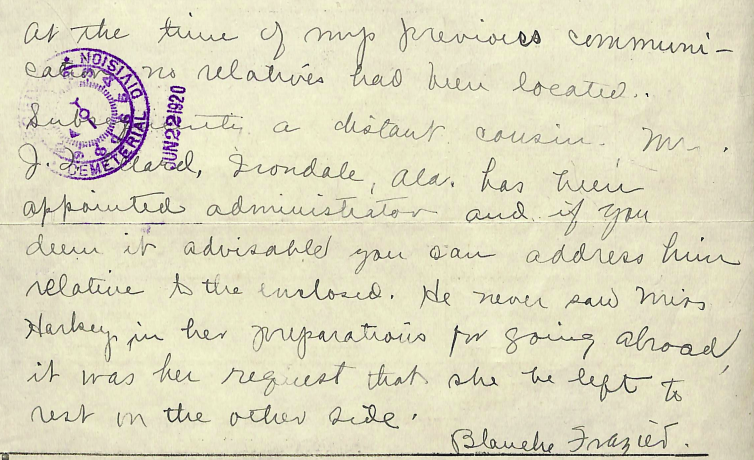 At the time of my previous communi-
cation no relatives had been located.
Subsequently a distant cousin, Mr.
J. Irondale, Ala. has been
appointed administrator and if you
deem it advisable you can address him
relative to the enclosed. He never saw Miss
Harkey in her preparations for going abroad,
it was her request that she be left to
rest on the other side.
Blanche Frazier.
CEMETERIAL DIVISION
JUN 22 1920